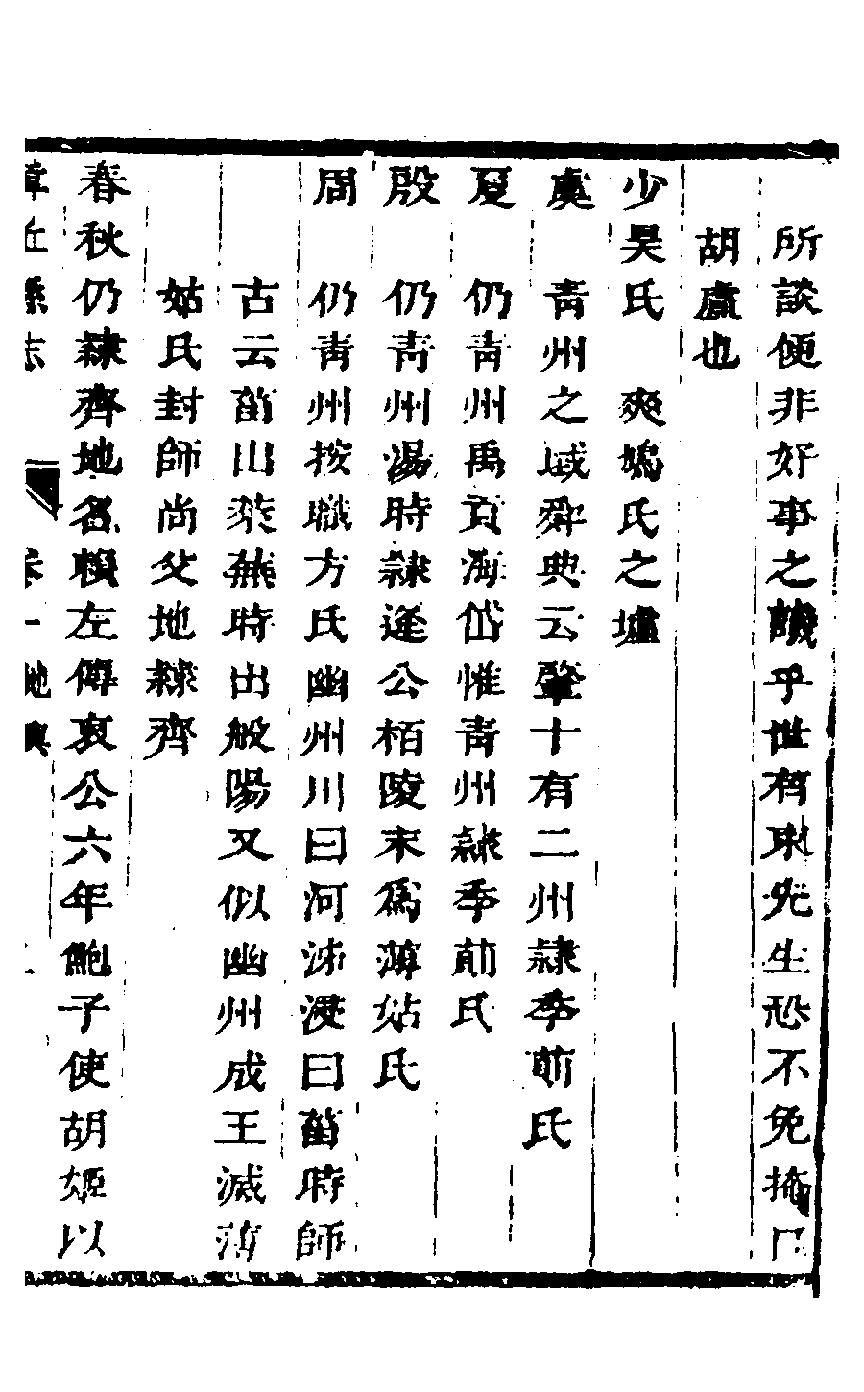 所談便非好事之譏乎世有東先生恐不免掩口
胡盧也
少昊氏 爽鳩氏之墟
虞 青州之域舜典云肇十有二州隷季萴氏
夏 仍青州禹貢海岱惟青州隷季萴氏
殷 仍青州湯時隷逢公栢陵末爲薄姑氏
周 仍青州按職方氏幽州川曰河泲浸曰菑時師
古云菑出萊蕪時出般陽又似幽州成王滅薄
姑氏封師尚父地隷齊
春秋仍隷齊地名賴左傳哀公六年鮑子使胡姬以
章丘縣志 卷一 地輿